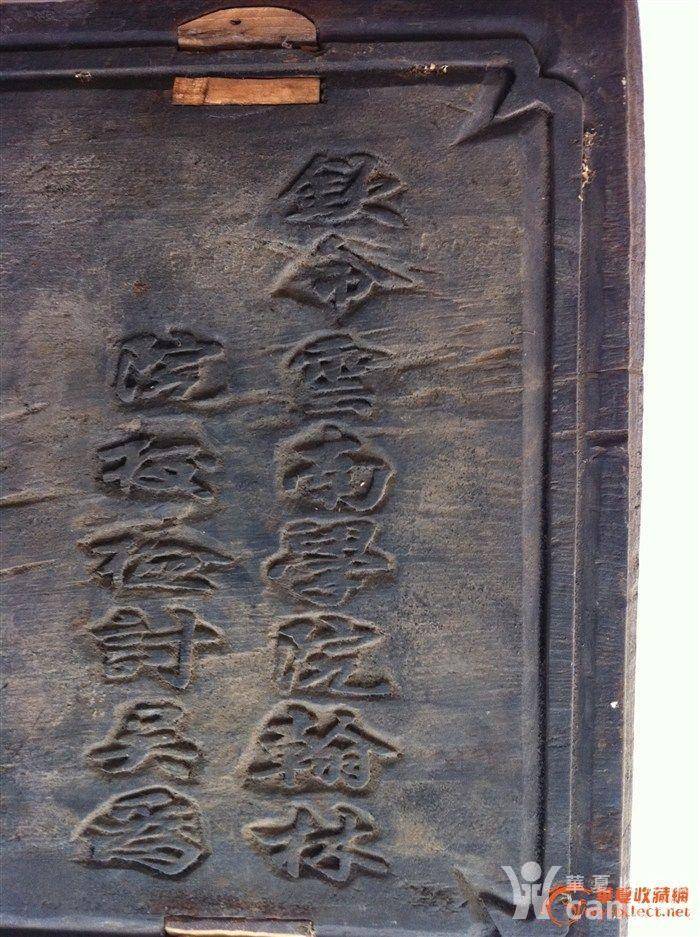 欽命雲南學院翰林
院檢討吳為
華夏
華夏收藏網